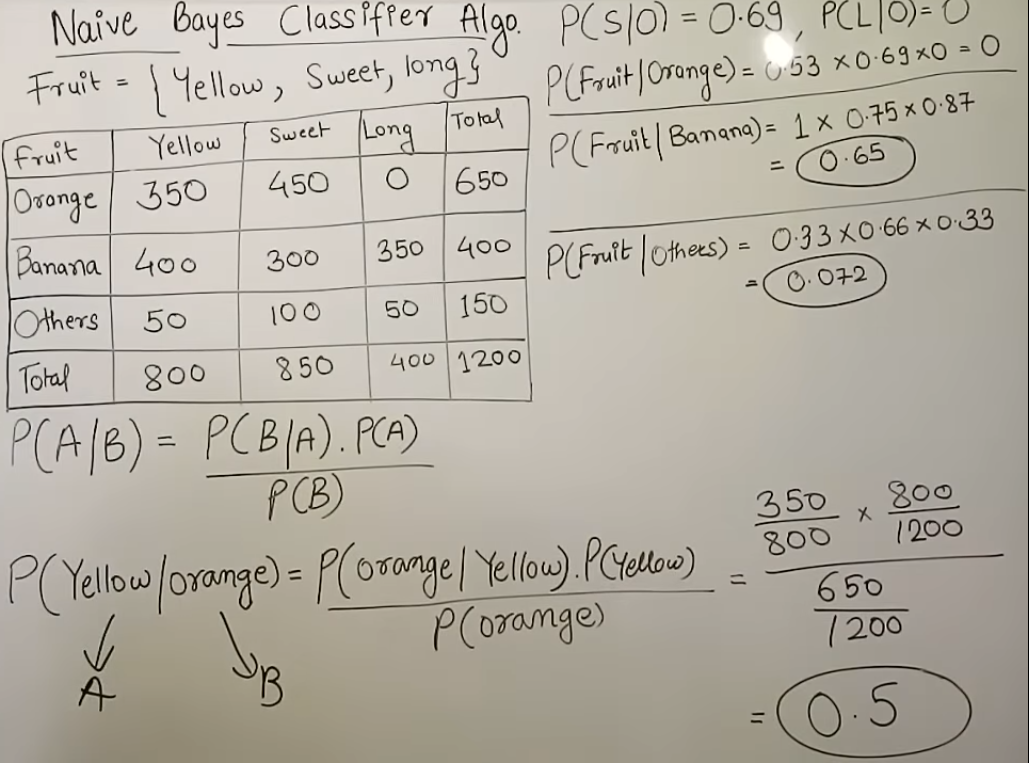 Naive Bayes Classifier Algo.
Fruit = { Yellow, Sweet, long}
Fruit Yellow Sweet Long Total
Orange 350 450 0 650
Banana 400 300 350 400
Others 50 100 50 150
Total 800 850 400 1200
P(A/B) = P(B|A).P(A)
P(B)
P(Yellow/orange) = P(orange|Yellow).P(Yellow)
P(orange)
A B
P(S|O) = 0.69, P(L|O) = 0
P(Fruit/Orange) = 0.53 x 0.69 x 0 = 0
P(Fruit|Banana) = 1 x 0.75 x 0.87
= 0.65
P(Fruit|Others) = 0.33 x 0.66 x 0.33
= 0.072
= 350/800 x 800/1200
650/1200
= 0.5